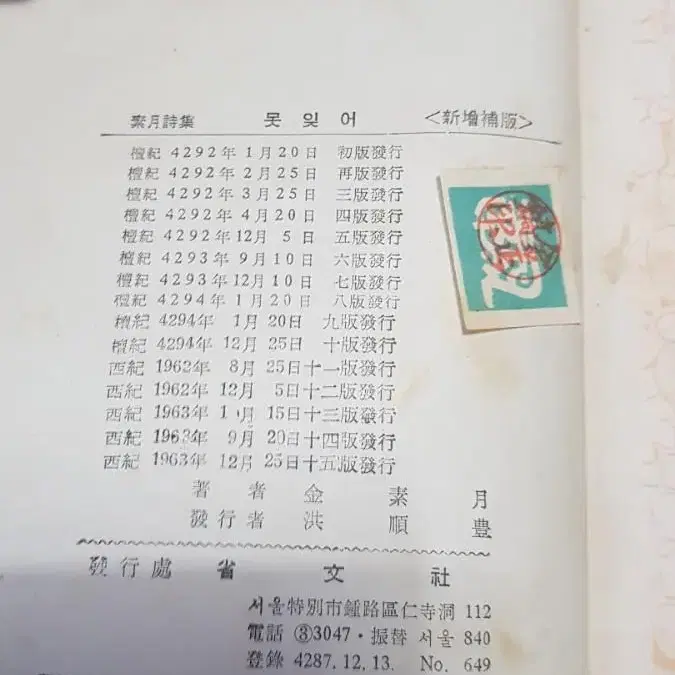 素月詩集 못잊어 <新增補版>
檀紀 4292年 1月20日 初版發行
檀紀 4292年 2月25日 再版發行
檀紀 4292年 3月25日 三版發行
檀紀 4292年 4月20日 四版發行
檀紀 4292年12月 5日 五版發行
檀紀 4293年 9月10日 六版發行
檀紀 4293年12月10日 七版發行
檀紀 4294年 1月20日 八版發行
檀紀 4294年 1月20日 九版發行
檀紀 4294年 12月 25日 十版發行
西紀 1962年 8月 25日十一版發行
西紀 1962年 12月 5日十二版發行
西紀 1963年 1月 15日十三版發行
西紀 1963年 9月 20日十四版發行
西紀 1963年 12月 25日十五版發行
著者 金素月
發行者 洪順豊
發行處 省文社
서울特別市鍾路區仁寺洞 112
電話 ③3047·振替 서울 840
登錄 4287.12.13. No. 649